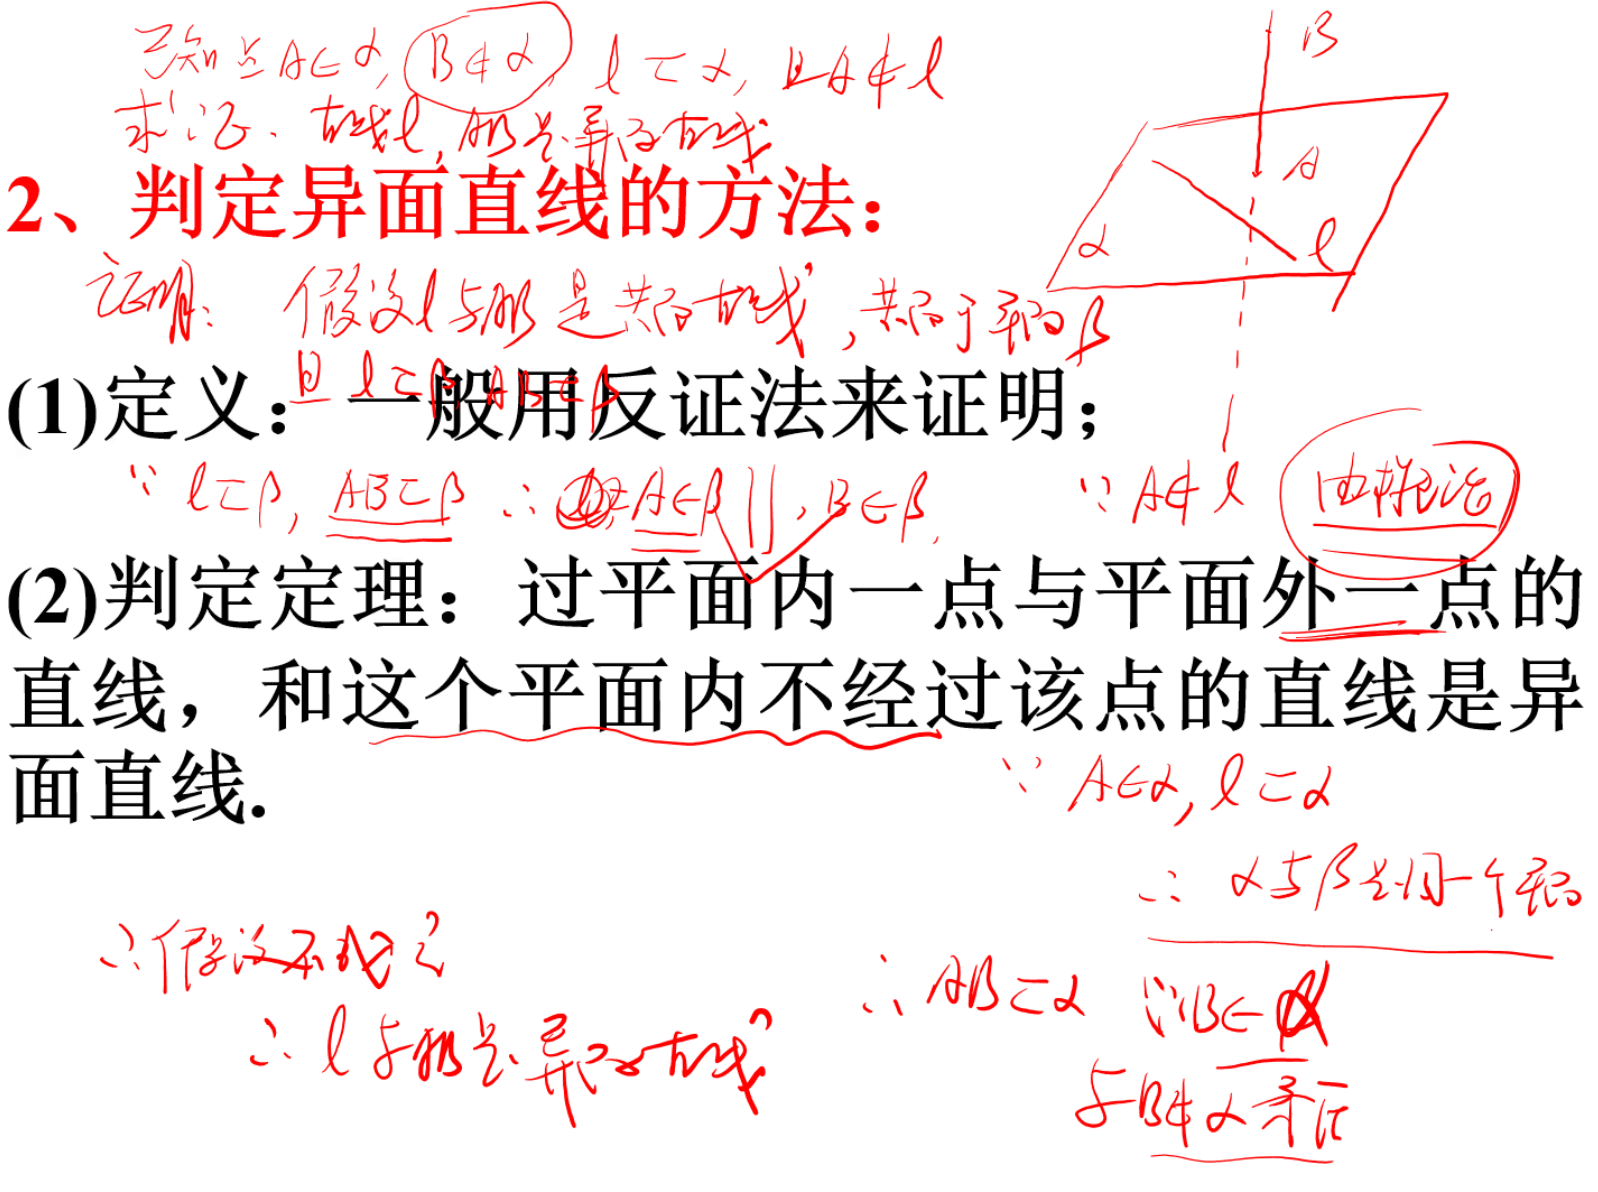 已知点A∈α, B∉α, l⊂α, 且A∉l
求证: 直线l, AB是异面直线
B
A
α
l
2、判定异面直线的方法：
证明: 假设l与AB是共面直线, 共面于平面β
且l⊂β, AB⊂β
(1)定义：一般用反证法来证明；
∵ l⊂β, AB⊂β ∴ A∈β, B∈β,
∵ A∉l
(2)判定定理：过平面内一点与平面外一点的
直线，和这个平面内不经过该点的直线是异
面直线.
∵ A∈α, l⊂α
∴ α与β是同一个平面
∴ AB⊂α ∴B∈α
与B∉α矛盾
∴假设不成立
∴ l与AB是异面直线